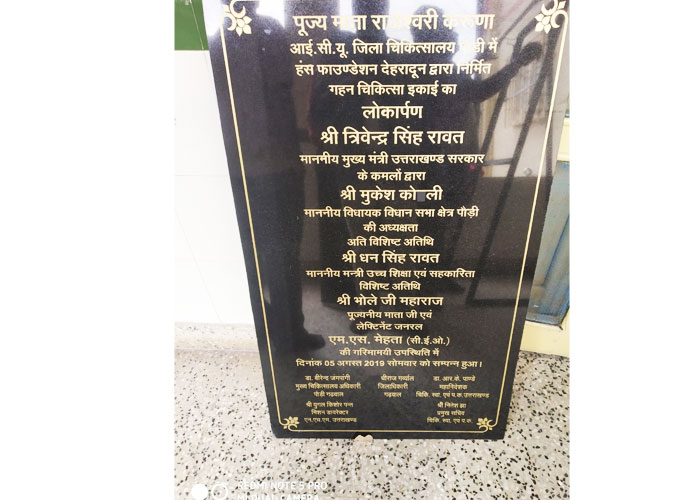 पूज्य माता राजेश्वरी करूणा
आई.सी.यू. जिला चिकित्सालय पौड़ी में
हंस फाउण्डेशन देहरादून द्वारा निर्मित
गहन चिकित्सा इकाई का
लोकार्पण
श्री त्रिवेन्द्र सिंह रावत
माननीय मुख्य मंत्री उत्तराखण्ड सरकार
के कमलों द्वारा
श्री मुकेश
माननीय विधायक विधान सभा क्षेत्र पौड़ी
की अध्यक्षता
अति विशिष्ट अतिथि
श्री धन सिंह रावत
माननीय मन्त्री उच्च शिक्षा एवं सहकारिता
विशिष्ट अतिथि
श्री भोले जी महाराज
पूज्यनीय माता जी एवं
लेफ्टिनेंट जनरल
एम.एस. मेहता (सी.ई.ओ.)
की गरिमामयी उपस्थिति में
दिनांक 05 अगस्त 2019 सोमवार को सम्पन्न हुआ।
डा. बीरेन्द्र जनपांगी
मुख्य चिकित्साधिकारी
पौड़ी गढ़वाल
श्री युगल किशोर पन्त
मिशन डायरेक्टर
एन.एच.एम. उत्तराखण्ड
धीराज गर्ब्याल
जिलाधिकारी
गढ़वाल
डा. आर.के. पाण्डे
महानिदेशक
चिकि. स्वा. एवं प.क. उत्तराखण्ड
श्री नितेश झा
प्रमुख सचिव
चिकि. स्वा. एवं प.क.
REDMI NOTE 5 PRO
MI DUAL CAMERA